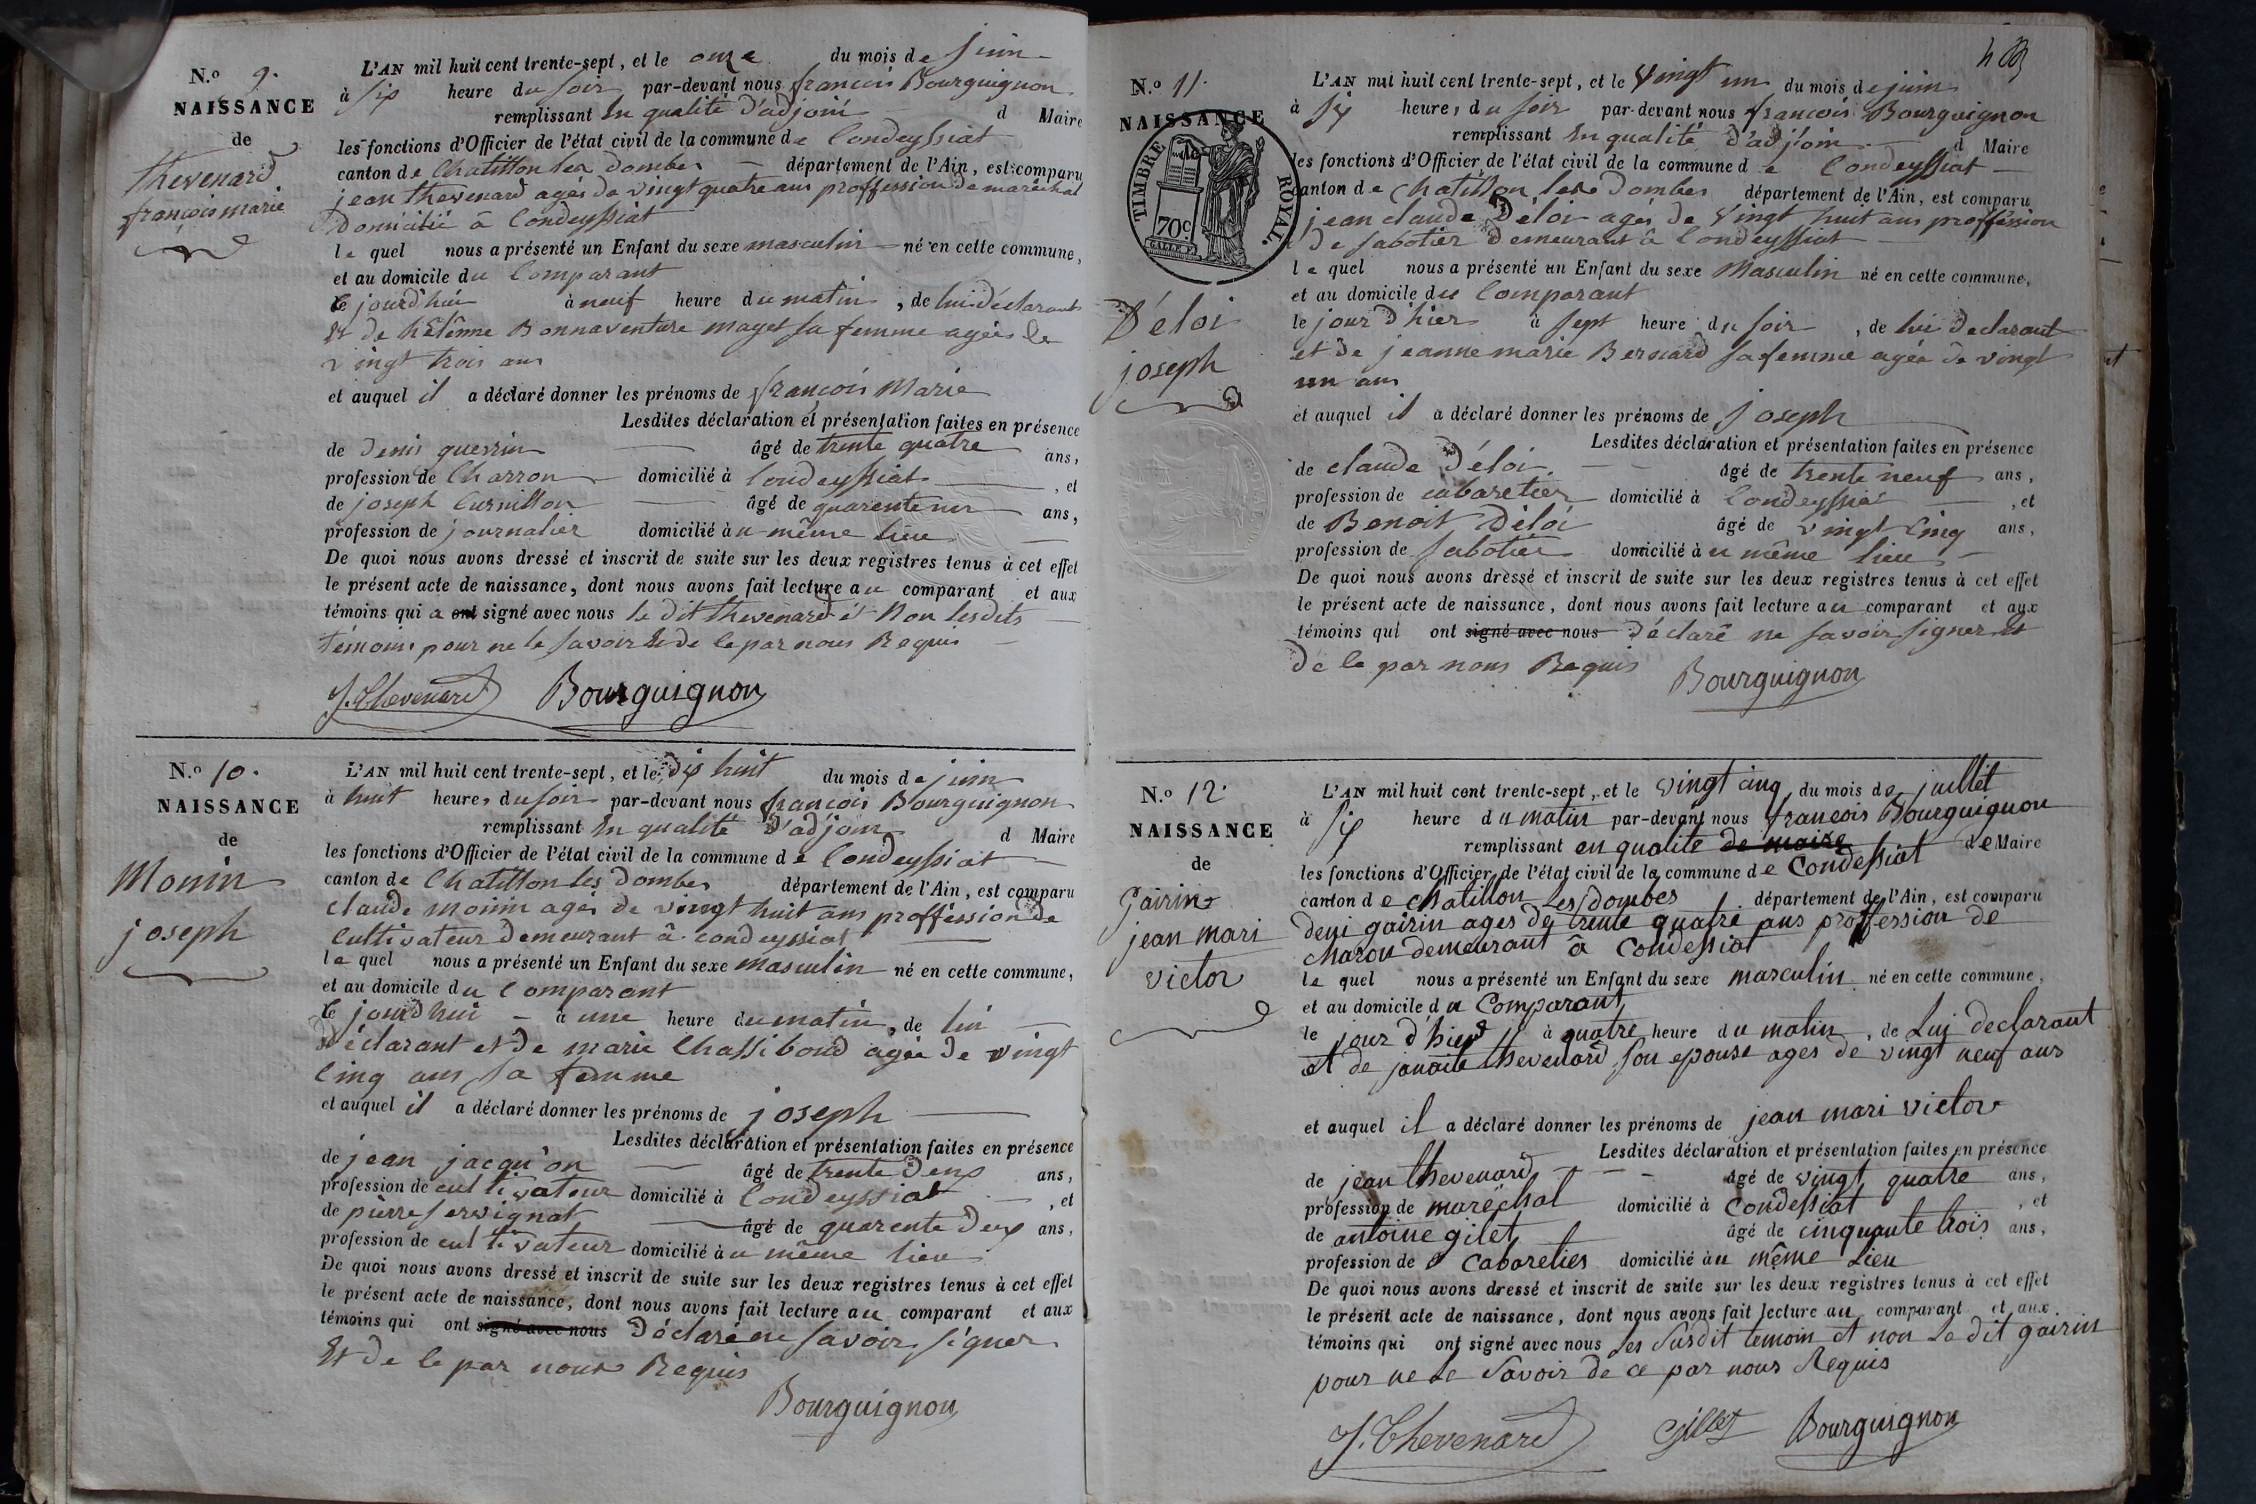 N.o 9.
NAISSANCE
de
thevenard
françois marie
L'AN mil huit cent trente-sept, et le onze du mois de Juin
à six heure du soir par-devant nous francois Bourguignon
remplissant En qualité d'adjoin d Maire
les fonctions d'Officier de l'état civil de la commune de Condeyssiat
canton de Chatillon les dombes département de l'Ain, est comparu
jean thevenard agés de vingt quatre ans proffession de maréchal
Domicilié à Condeyssiat
le quel nous a présenté un Enfant du sexe masculin né en cette commune,
et au domicile du Comparant
le jourd'hui à neuf heure du matin, de lui déclarant
Et de Bonnaventure mayet sa femme agées de
vingt trois ans
et auquel il a déclaré donner les prénoms de françois Marie
Lesdites déclaration et présentation faites en présence
de Denis guerrin âgé de trente quatre ans,
profession de Charron domicilié à Condeyssiat, et
de joseph Curnillon âgé de quarente un ans,
profession de journalier domicilié au même lieu
De quoi nous avons dressé et inscrit de suite sur les deux registres tenus à cet effet
le présent acte de naissance, dont nous avons fait lecture au comparant et aux
témoins qui a ont signé avec nous le dit thevenard et Non lesdits
témoins pour ne le savoir de ce par nous Requis
J. Thevenard Bourguignon
N.o 10.
NAISSANCE
de
Monin
joseph
L'AN mil huit cent trente-sept, et le dix huit du mois de juin
à huit heures du soir par-devant nous françois Bourguignon
remplissant En qualité d'adjoin d Maire
les fonctions d'Officier de l'état civil de la commune de Condeyssiat
canton de Chatillon les Dombes département de l'Ain, est comparu
Claude monin agés de vingt huit ans proffession de
Cultivateur demeurant à condeyssiat
le quel nous a présenté un Enfant du sexe masculin né en cette commune,
et au domicile du Comparant
le jourd'hui à une heure du matin, de lui
déclarant et de marie Chassiboud agée de vingt
Cinq ans sa femme
et auquel il a déclaré donner les prénoms de joseph
Lesdites déclaration et présentation faites en présence
de jean jacqu'on âgé de trente Deux ans,
profession de cultivateur domicilié à Condeyssiat, et
de pierre servignat âgé de quarente Deux ans,
profession de cultivateur domicilié au même lieu
De quoi nous avons dressé et inscrit de suite sur les deux registres tenus à cet effet
le présent acte de naissance, dont nous avons fait lecture au comparant et aux
témoins qui ont signé avec nous Déclaré ne savoir signer
Et de ce par nous Requis
Bourguignon
N.o 11.
NAISSANCE
TIMBRE ROYAL.
70c
Déloi
joseph
L'AN mil huit cent trente-sept, et le Vingt un du mois de juin
à six heures du soir par-devant nous françois Bourguignon
remplissant En qualité d'adjoin d Maire
les fonctions d'Officier de l'état civil de la commune de Condeyssiat
canton de Chatillon les Dombes département de l'Ain, est comparu
jean claude Déloi agés de Vingt huit ans proffession
De sabotier demeurant à Condeyssiat
le quel nous a présenté un Enfant du sexe Masculin né en cette commune,
et au domicile du Comparant
le jour d'hier à sept heure du soir, de lui Declarant
et de jeanne marie Bernard sa femme agée de vingt
un ans
et auquel il a déclaré donner les prénoms de joseph
Lesdites déclaration et présentation faites en présence
de claude Déloi. âgé de trente neuf ans,
profession de cabaretier domicilié à Condeyssiat, et
de Benoit Déloi âgé de vingt Cinq ans,
profession de sabotier domicilié au même lieu
De quoi nous avons dressé et inscrit de suite sur les deux registres tenus à cet effet
le présent acte de naissance, dont nous avons fait lecture au comparant et aux
témoins qui ont signé avec nous déclaré ne savoir signer Et
de ce par nous Requis Bourguignon
N.o 12.
NAISSANCE
de
Gairin
jean mari
victor
L'AN mil huit cent trente-sept, et le vingt cinq du mois de juillet
à six heure du matin par-devant nous francois Bourguignon
remplissant en qualité de maire de Maire
les fonctions d'Officier de l'état civil de la commune de Condessiat
canton de chatillon les dombes, département de l'Ain, est comparu
deni gairin ages de trente quatre ans proffession de
charon demeurant à Condessiat
le quel nous a présenté un Enfant du sexe masculin né en cette commune,
et au domicile du Comparant
le jour d'hier à quatre heure du matin, de Luj declarant
et de thevenard son epouse ages de vingt neuf ans
et auquel il a déclaré donner les prénoms de jean mari victor
Lesdites déclaration et présentation faites en présence
de jean thevenard âgé de vingt quatre ans,
profession de maréchal domicilié à Condessiat, et
de antoine gilet âgé de cinquante trois ans,
profession de Cabaretier domicilié au même Lieu
De quoi nous avons dressé et inscrit de suite sur les deux registres tenus à cet effet
le présent acte de naissance, dont nous avons fait lecture au comparant et aux
témoins qui ont signé avec nous les susdit temoin et non le dit gairin
pour ne le savoir de ce par nous Requis
J. Thevenard Gillet Bourguignon